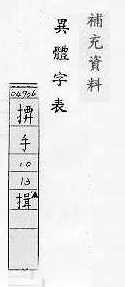 補充資料
異體字表
04706
手
10
13
揖